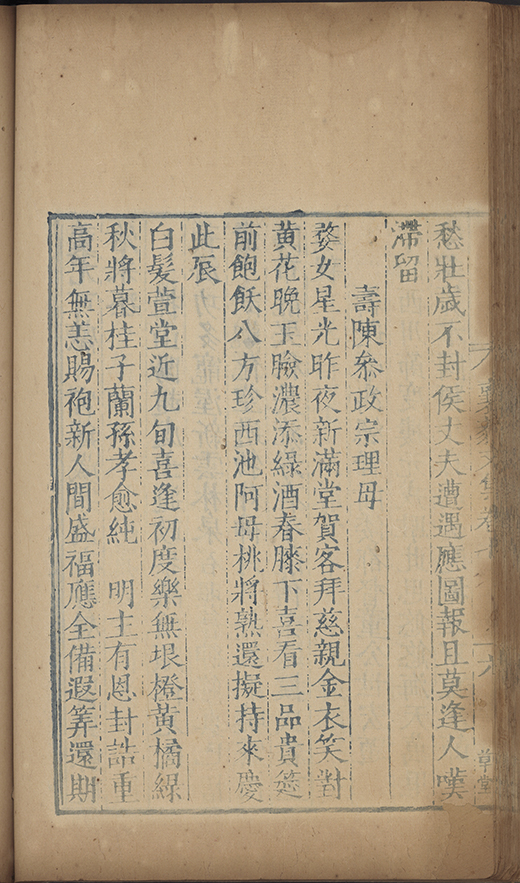 愁壯歲不封侯丈夫遭遇應圖報且莫逢人嘆
滯留
壽陳叅政宗理母
婺女星光昨夜新滿堂賀客拜慈親金衣笑對
黃花晚玉臉濃添綠酒春膝下喜看三品貴筵
前飽飫八方珍西池阿母桃將熟還擬持來慶
此辰
白髮萱堂近九旬喜逢初度樂無垠橙黃橘綠
秋將暮桂子蘭孫孝愈純　明主有恩封誥重
高年無恙賜袍新人間盛福應全備遐筭還期
草堂